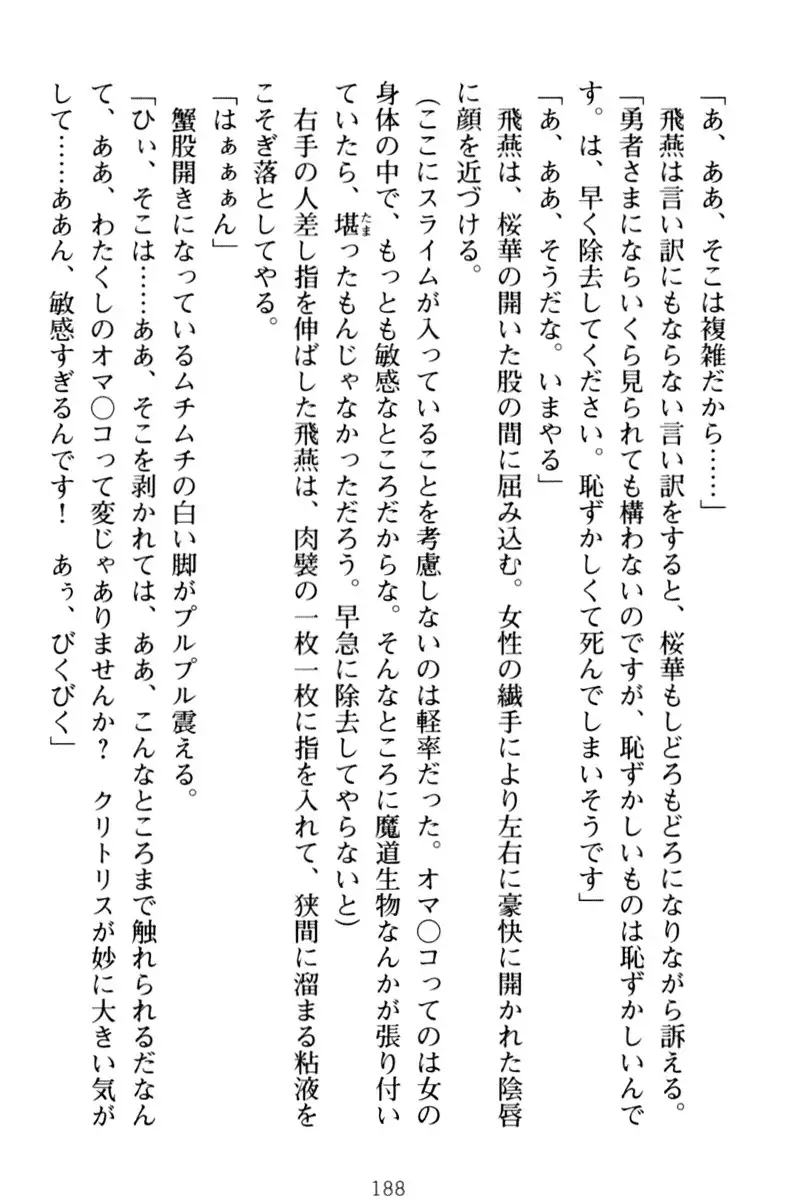 「あ、ああ、そこは複雑だから……」
飛燕は言い訳にもならない言い訳をすると、桜華もしどろもどろになりながら訴える。
「勇者さまにならいくら見られても構わないのですが、恥ずかしいものは恥ずかしいんで
す。は、早く除去してください。恥ずかしくて死んでしまいそうです」
「あ、ああ、そうだな。いまやる」
飛燕は、桜華の開いた股の間に屈み込む。女性の繊手により左右に豪快に開かれた陰唇
に顔を近づける。
(ここにスライムが入っていることを考慮しないのは軽率だった。オマ〇コってのは女の
身体の中で、もっとも敏感なところだからな。そんなところに魔道生物なんかが張り付い
ていたら、堪ったもんじゃなかっただろう。早急に除去してやらないと)
たま
右手の人差し指を伸ばした飛燕は、肉襞の一枚一枚に指を入れて、狭間に溜まる粘液を
こそぎ落としてやる。
「はぁぁぁん」
蟹股開きになっているムチムチの白い脚がプルプル震える。
「ひぃ、そこは……ああ、そこを剥かれては、ああ、こんなところまで触れられるだなん
て、ああ、わたくしのオマ〇コって変じゃありませんか? クリトリスが妙に大きい気が
して……ああん、敏感すぎるんです! あぅ、びくびく」
188